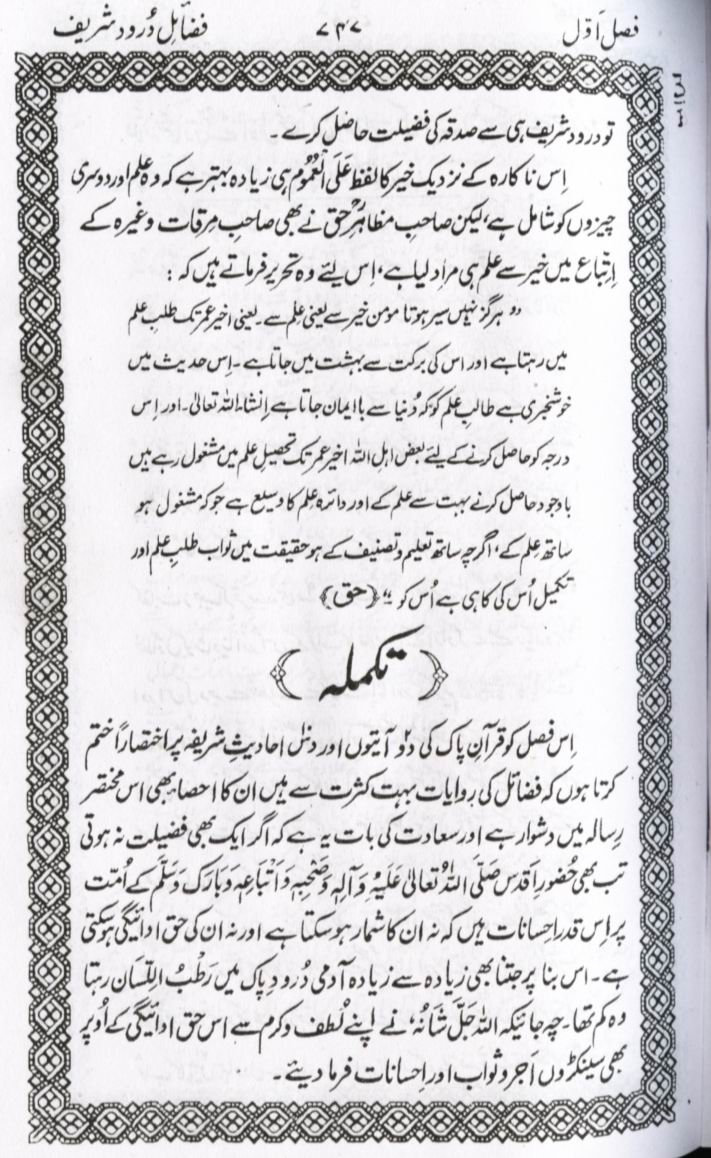 فصل اَوّل ۷۴۷ فضائلِ دُرود شریف
تو درود شریف ہی سے صدقہ کی فضیلت حاصل کرے۔
اِس ناکارہ کے نزدیک خیر کا لفظ عَلَی الْعُمُوْم ہی زیادہ بہتر ہے کہ وہ علم اور دوسری
چیزوں کو شامل ہے، لیکن صاحبِ مظاہرِ حق نے بھی صاحبِ مِرقات وغیرہ کے
اِتّباع میں خیر سے علم ہی مراد لیا ہے، اِس لیئے وہ تحریر فرماتے ہیں کہ :
"ہرگز نہیں سیر ہوتا مومن خیر سے یعنی عِلم سے۔ یعنی اخیر عمر تک طلبِ علم
میں رہتا ہے اور اس کی برکت سے بہشت میں جاتا ہے۔ اِس حدیث میں
خوشخبری ہے طالبِ علم کو کہ دُنیا سے باایمان جاتا ہے اِنشاءاللہ تعالیٰ۔ اور اِس
درجہ کو حاصل کرنے کے لیئے بعض اہل اللہ اخیر عمر تک تحصیلِ علم میں مشغول رہے ہیں
باوجود حاصل کرنے بہت سے علم کے اور دائرہ عِلم کا وسیع ہے جو کہ مشغول ہو
ساتھ عِلم کے، اگرچہ ساتھ تعلیم و تصنیف کے ہو حقیقت میں ثواب طلبِ علم اور
تکمیل اُس کی کا ہی ہے اُس کو"۔ (حق)
تکملہ
اِس فصل کو قرآنِ پاک کی دو آیتوں اور دس احادیثِ شریفہ پر اختصاراً ختم
کرتا ہوں کہ فضائل کی روایات بہت کثرت سے ہیں ان کا احصا بھی اس مختصر
رِسالہ میں دشوار ہے اور سعادت کی بات یہ ہے کہ اگر ایک بھی فضیلت نہ ہوتی
تب بھی حُضورِ اَقدس صَلَّی اللّٰہُ تَعَالیٰ عَلَیْہِ وَآلِہٖ وَصَحْبِہٖ وَاَتْبَاعِہٖ وَبَارَکَ وَسَلَّم کے اُمّت
پر اِس قدر اِحسانات ہیں کہ نہ ان کا شمار ہوسکتا ہے اور نہ ان کی حق ادائیگی ہوسکتی
ہے۔ اس بنا پر جتنا بھی زیادہ سے زیادہ آدمی دُرودِ پاک میں رَطْبُ اللِّسَان رہتا
وہ کم تھا۔ چہ جائیکہ اللہ جَلَّ شَانُہٗ نے اپنے لُطف و کرم سے اس حق ادائیگی کے اُوپر
بھی سینکڑوں اجر و ثواب اور اِحسانات فرما دیئے۔